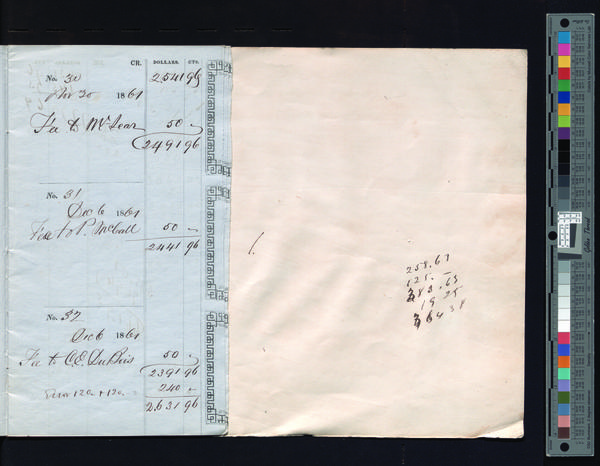 CR. DOLLARS. CTS.
No. 30 2541 96
Nov 30 1861
Fee to McLear 50 –
2491 96
No. 31
Dec 6 1861
Fee to P. McCall 50 –
2441 96
No. 32
Dec 6 1861
Fee to C.E. DuBois 50 –
2391 96
Error 120 + 120. – 240 –
2631 96
1.
258.61
125. –
383.63
19 25
364 38